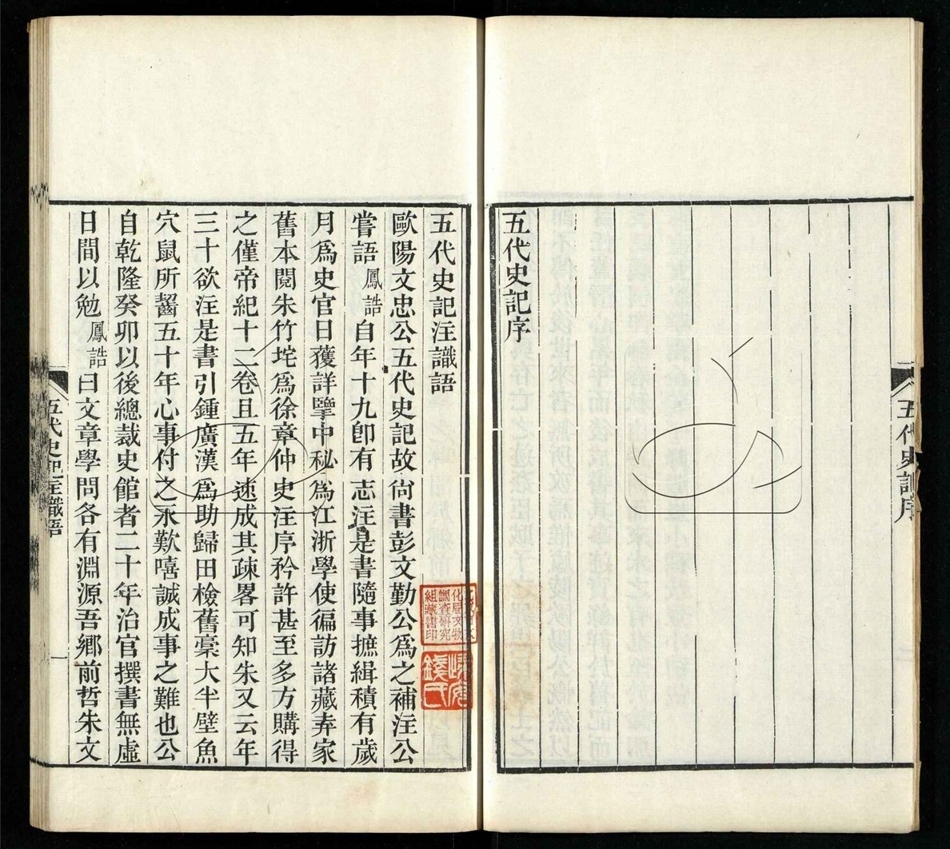 五代史記序
五代史記序
五代史記注識語
歐陽文忠公五代史記故尙書彭文勤公爲之補注公
嘗語鳳誥自年十九卽有志注是書隨事摭緝積有歲
月爲史官日獲詳擥中秘爲江浙學使徧訪諸藏弆家
舊本閱朱竹垞爲徐章仲史注序矜許甚至多方購得
之僅帝紀十二卷且五年速成其疎畧可知朱又云年
三十欲注是書引鍾廣漢爲助歸田檢舊稾大半壁魚
穴鼠所齧五十年心事付之永歎嘻誠成事之難也公
自乾隆癸卯以後總裁史館者二十年治官撰書無虛
日間以勉鳳誥曰文章學問各有淵源吾鄉前哲朱文
五代史記注識語
一